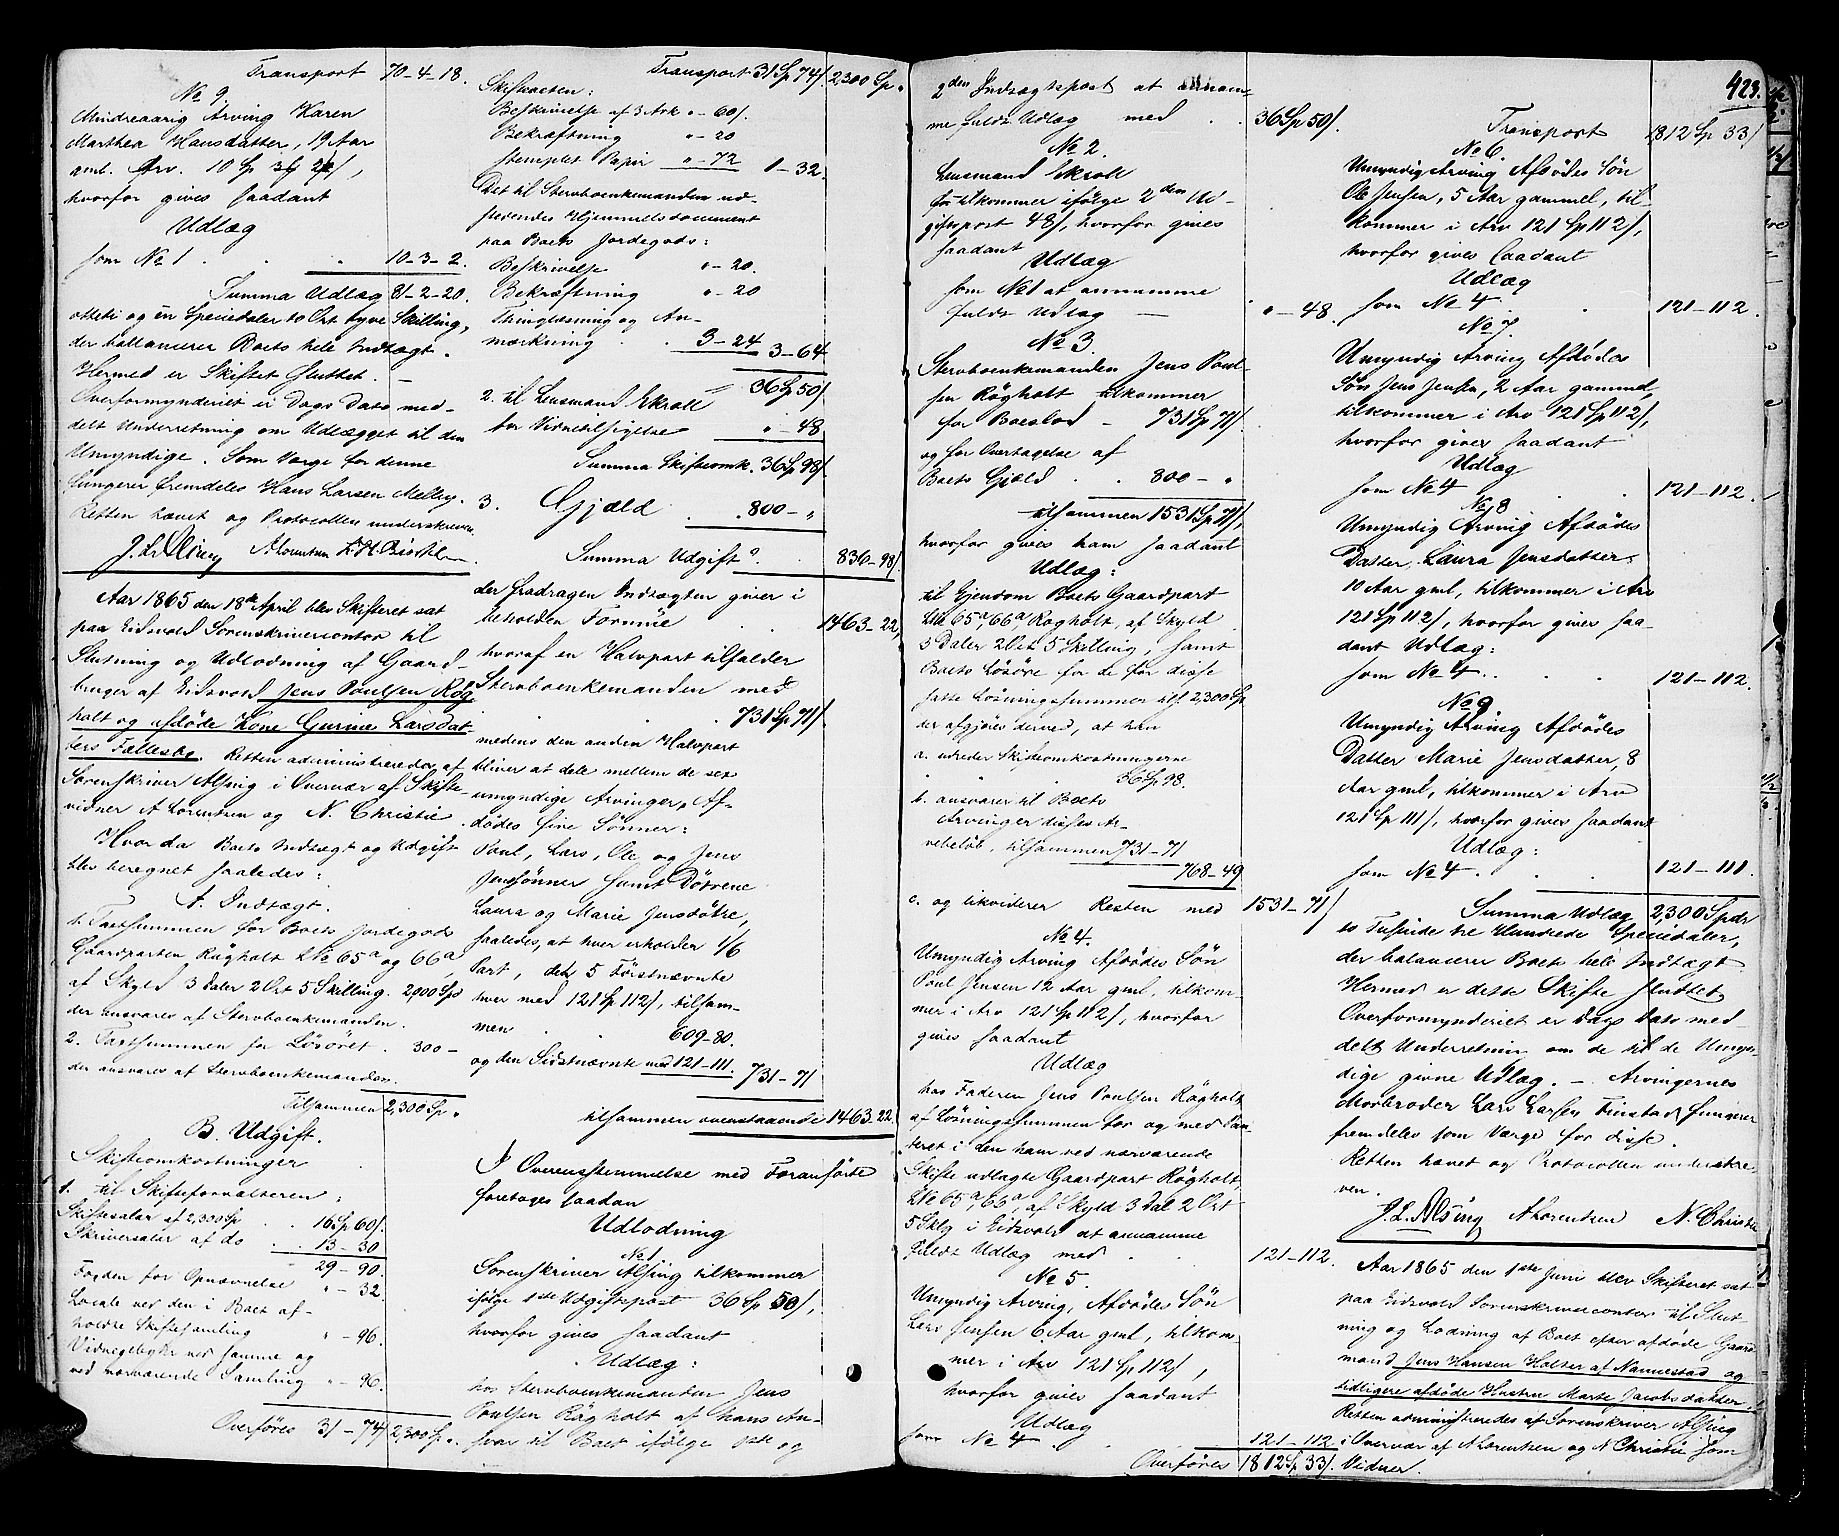 Transport 70-4-18.
No 9.
Mindreaarig Arving Karen
Marthea Hansdatter, 19 Aar
aml. Arv. 10 Sp
hvorfor gives saadant
Udlæg
som No 1 . . " 10-3-2.
Summa Udlæg 81-2-20.
otteti og en Speciedaler to Ort tyve Skilling,
der ballancerer Boets hele Indtægt.
Hermed er Skiftet sluttet. —
Overformynderiet ei Dags Dato med-
delt Underretning om Udlægget til den
Umyndige. Som Værge for denne
fungerer fremdeles Hans Larsen Melby.
Retten hævet og Protocollen underskreven.
J. L. Alsing A Lorentzen
Aar 1865 den 18de April blev Skifteret sat
paa Eidsvold Sorenskrivercontor til
Slutning og Udlodning af Gaard-
bruger af Eidsvold Jens Poulsen Røg
holt og afdøde Kone Gurine Larsdat-
ters Fællesbo. Retten administreredes af
Sorenskriver Alsing i Overvær af Skifte-
vidner A Lorentzen og N. Christie.
Hvorda Boets Indtægt og Udgift
blev beregnet saaledes:
A. Indtægt.
1. Taxtsummen for Boets Jordegods
Gaardparten Røgholt LNo 65a og 66a,
af Skyld 3 Daler 2 Ort 5 Skilling. 2,000 Spd
der ansvares af Stervboenkemanden.
2. Taxtsummen for Løsøret . 300 —
der ansvares af Stervboenkemanden.
Tilsammen 2,300 Sp "
B. Udgift.
Skifteomkostninger
1. til Skifteforvalteren:
Skiftesalær af 2,300 Sp . . 16 Sp 60/.
Skriversalær af do . . 13-30
29-90.
Foden for Opnævnelse "-32.
Locale ved den i Boet af-
holdte Skiftesamling "-96.
Vidnegebyhr ved samme og
ved nærværende Samling "-96.
Overføres 31-74/ 2,300 Sp ".
Transport 31 Sp 74/. 2300 Sp "
Skifteacten:
Beskrivelse af 3 Ark "-60/.
Bekræftning "-20
stemplet Papir "-72 1-32.
Det til Stervboenkemanden ud-
stedendes Hjemmelsdocument
paa Boets Jordegods:
Beskrivelse "-20.
Bekræftning "-20
Thinglæsning og An-
mærkning . . 3-24 3-64
36 Sp 50/.
2. til Lensmand Ekroll
for Vidnetilsigelse "-48
Summa Skifteomk. 36 Sp 98/.
3. Gjæld . . 800-"
Summa Udgift . . 836-98/.
der fradragen Indtægten giver i
beholden Formue . . 1463-22,
hvoraf en Halvpart tilfalder
Stervboenkemanden med
. . . 731 Sp 71/.
medens den anden Halvpart
bliver at dele mellem de sex
umyndige Arvinger, Af-
dødes fire Sønner:
Poul, Lars, Ole og Jens
Jenssønner samt Døtrene
Laura og Marie Jensdøtre,
saaledes, at hver erholder 1/6
Part, de 5 Førstnævnte
hver med 121 Sp 112/, tilsam-
men . . 609-80.
og den Sidstnævnte med 121-111. 731-71
tilsammen ovenstaaende 1463-22.
I Overensstemmelse med Foranførte
foretoges saadan
Udlodning
No 1.
Sorenskriver Alsing tilkommer
ifølge 1ste Udgiftspost 36 Sp 50/,
hvorfor gives saadant
Udlæg:
hos Stervboenkemanden Jens
Poulsen Røgholt af hans An-
svar til Boet ifølge 1ste og
423.
2den Indtægtspost at annam-
me fuldt Udlæg med . . 36 Sp 50/.
No 2.
Lensmand Ekroll
tilkommer ifølge 2den Ud-
giftspost 48/, hvorfor gives
saadant
Udlæg
som No 1 at annamme
fuldt Udlæg — "-48.
No 3.
Stervboenkemanden Jens Poul-
sen Røgholt tilkommer
for Boeslod — 731 Sp 71/.
og for Overtagelse af
Boets Gjæld . . 800-"
tilsammen 1531 Sp 71/,
hvorfor gives ham saadant
Udlæg:
til Ejendom Boets Gaardpart
LNo 65a, 66a, Røgholt, af Skyld
3 Daler 2 Ort 5 Skilling, samt
Boets Løsøre for de for disse
satte Løsningssummer tils. 2,300 Sp
der afgjøres dermed, at han
a. udreder Skifteomkostningerne
" " 36 Sp 98.
b. ansvarer til Boets
Arvinger disses Ar-
vebeløb, tilsammen 731-71
768-49
c. og likviderer Resten med 1531-71/
No 4.
Umyndig Arving Afdødes Søn
Poul Jensen 12 Aar gml, tilkom-
mer i Arv 121 Sp 112/, hvorfor
gives saadant
Udlæg
hos Faderen Jens Poulsen Røgholt
af Løsningssummen for og med Pan-
teret i den ham ved nærværende
Skifte udlagte Gaardpart Røgholt,
LNo 65a, 66a, af Skyld 3 Dal 2 Ort
5 Sklg i Eidsvold at annamme
fuldt Udlæg med . . 121-112.
No 5.
Umyndig Arving, Afdødes Søn
Lars Jensen 6 Aar gml, tilkom-
mer i Arv 121 Sp 112/,
hvorfor gives saadant
Udlæg
som No 4. . . 121-112
Overføres 1812 Sp 33/.
Transport 1812 Sp 33/
No 6.
Umyndig Arving Afdødes Søn
Ole Jensen, 5 Aar gammel, til-
kommer i Arv 121 Sp 112/,
hvorfor gives saadant
Udlæg
som No 4 . 121-112.
No 7.
Umyndig Arving Afdødes
Søn Jens Jensen, 2 Aar gammel,
tilkommer i Arv 121 Sp 112/,
hvorfor gives saadant
Udlæg
som No 4 . . 121-112.
No 8
Umyndig Arving Afdødes
Datter Laura Jensdatter,
10 Aar gml, tilkommer i Arv
121 Sp 112/, hvorfor gives saa-
dant Udlæg:
som No 4. . . 121-112.
No 9
Umyndig Arving Afdødes
Datter Marie Jensdatter, 8
Aar gml, tilkommer i Arv
121 Sp 111/, hvorfor gives saadant
Udlæg:
som No 4. . . 121-111.
Summa Udlæg 2,300 Spdr
to Tusinde tre Hundrede Speciedaler,
der balancerer Boets hele Indtægt.
Hermed er dette Skifte sluttet
Overformynderiet er Dags Dato med-
delt Underretning om de til de Umyn-
dige givne Udlæg. — Arvingernes
Morbroder Lars Larsen Finstad fungerer
fremdeles som Værge for disse.
Retten hævet og Protocollen underskre-
ven.
J. L. Alsing A Lorentzen N. Christie
Aar 1865 den 1ste Juni blev Skifteret sat
paa Eidsvold Sorenskrivercontor til Slut-
ning og Lodning af Boet efter afdøde Gaard-
mand Jens Hansen Holter af Nannestad og
tidligere afdøde Hustru Marte Jacobsdatter.
Retten administreredes af Sorenskriver Alsing
i Overvær af A Lorentzen og N Christie som
Vidner.